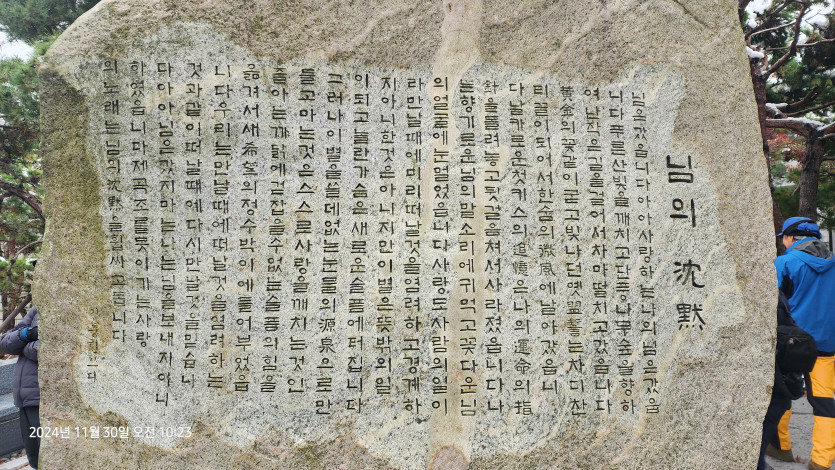 님의 沈默
님은갔읍니다아아사랑하는나의님은갔읍
니다푸른산빛을깨치고단풍나무숲을향하
여난작은길을걸어서차마떨치고갔읍니다
黃金의꽃같이굳고빛나던옛盟誓는차디찬
티끌이되어서한숨의微風에날아갔읍니
다날카로운첫키스의追憶은나의運命의指
針을돌려놓고뒷걸음쳐서사라졌읍니다나
는향기로운님의말소리에귀먹고꽃다운님
의얼굴에눈멀었읍니다사랑도사람의일이
라만날때에미리떠날것을염려하고경계하
지아니한것은아니지만이별은뜻밖의일
이되고놀란가슴은새로운슬픔에터집니다
그러나이별을쓸데없는눈물의源泉으로만
들고마는것은스스로사랑을깨치는것인
줄아는까닭에걷잡을수없는슬픔의힘을
옮겨서새希望의정수박이에들어부었읍
니다우리는만날때에떠날것을염려하는
것과같이떠날때에다시만날것을믿습니
다아아님은갔지마는나는님을보내지아니
하였읍니다제곡조를못이기는사랑
의노래는님의沈默을휩싸고돕니다
2024년 11월 30일 오전 10:23